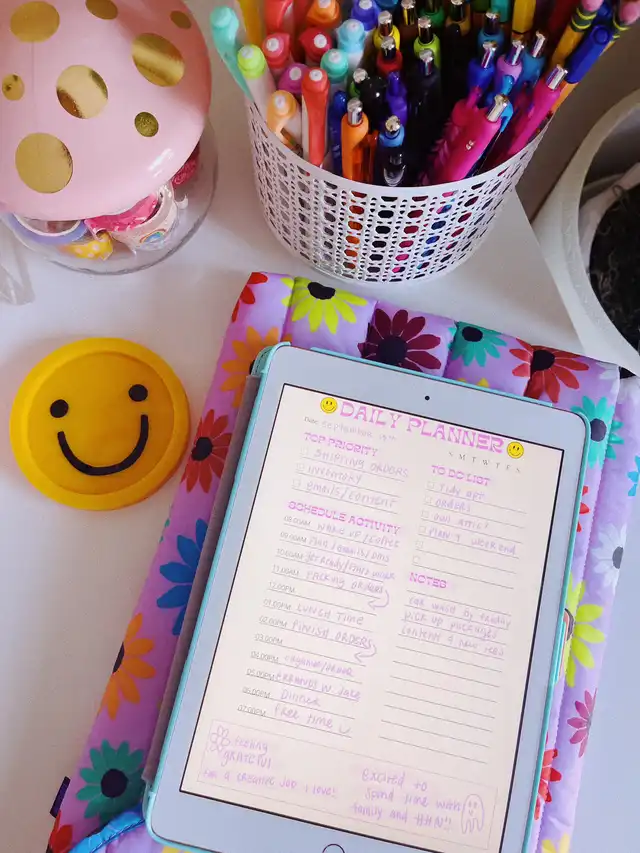 DAILY PLANNER
Date September 19th
S M T W T F S
TOP PRIORITY
SHIPPING ORDERS
INVENTORY
EMAILS/CONTENT
SCHEDULE ACTIVITY
08:00AM WAKE UP/COFFEE
09:00AM
10:00AM
11:00AM PACKING ORDERS
12:00PM
01:00PM LUNCH TIME
02:00PM FINISH ORDERS
03:00PM
04:00PM organize/
05:00PM errands w
06:00PM DINNER
07:00PM free time
TO DO LIST
Tidy apt
orders
PLAN 4 weekend
NOTES
car wash by tuesday
pick up packages
content 4 new
feeling
GRATEFUL
for a creative job i love!
Excited to
spend time with
family and